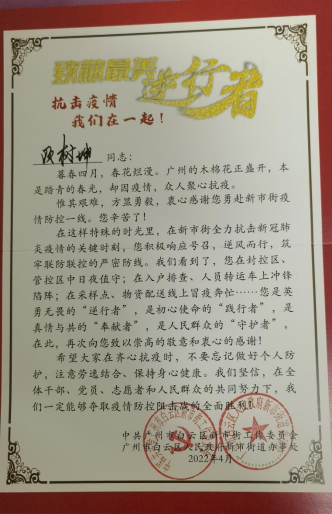 致敬最美逆行者
抗击疫情
我们在一起！
同志：
暮春四月，春花烂漫。广州的木棉花正盛开，本
是踏青的春光，却因疫情，众人聚心抗疫。
惟其艰难，方显勇毅，衷心感谢您勇赴新市街疫
情防控一线。您辛苦了！
在这样特殊的时光里，在新市街全力抗击新冠肺
炎疫情的关键时刻，您积极响应号召，逆风而行，筑
牢联防联控的严密防线。我们看到了，您在封控区、
管控区中日夜值守；在入户排查、人员转运车上冲锋
陷阵；在采样点、物资配送线上冒疫奔忙……您是英
勇无畏的“逆行者”，是初心使命的“践行者”，是
真情与共的“奉献者”，是人民群众的“守护者”，
在此，再次向您致以崇高的敬意和衷心的感谢！
希望大家在齐心抗疫时，不要忘记做好个人防
护，注意劳逸结合、保持身心健康。我们坚信，在全
体干部、党员、志愿者和人民群众的共同努力下，我
们一定能够夺取疫情防控阻击战的全面胜利！
中共广州市白云区新市街工作委员会
广州市白云区人民政府新市街道办事处
2022年4月